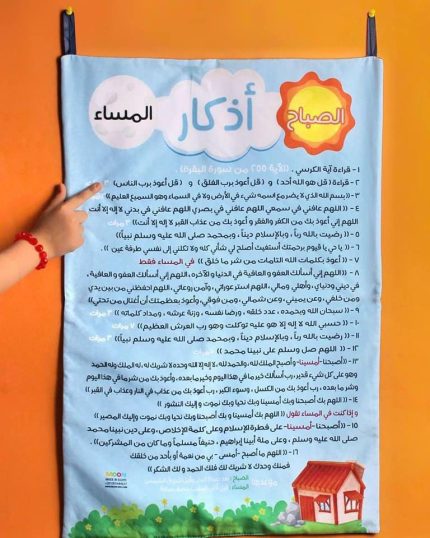 الصباح أذكار المساء
١ - قراءة آية الكرسي . ((الآية ٢٥٥ من سورة البقرة))
٢ - قراءة ( قل هو الله أحد ) و ( قل أعوذ برب الفلق ) و ( قل أعوذ برب الناس )
٣ - (( بسم الله الذي لا يضر مع اسمه شيء في الأرض ولا في السماء وهو السميع العليم ))
٤ - (( اللهم عافني في بدني اللهم عافني في سمعي اللهم عافني في بصري لا إله إلا أنت
اللهم إني أعوذ بك من الكفر والفقر و أعوذ بك من عذاب القبر لا إله إلا أنت)) مرات
٥ - (( رضيت بالله رباً ، وبالإسلام ديناً ، وبمحمد صلى الله عليه وسلم نبياً))
٦ - (( يا حي يا قيوم برحمتك أستغيث أصلح لي شأني كله ولا تكلني إلى نفسي طرفة عين ))
٧ - (( أعوذ بكلمات الله التامات من شر ما خلق )) في المساء فقط
٨ - ((اللهم إني أسألك العفو والعافية في الدنيا والآخرة، اللهم إني أسألك العفو والعافية ،
في ديني ودنياي، وأهلي ومالي ، اللهم استر عوراتي ، وآمن روعاتي ، اللهم احفظني من بين يدي
ومن خلفي ، وعن يميني ، وعن شمالي ، ومن فوقي ، وأعوذ بعظمتك أن أغتال من تحتي))
٩ - (( سبحان الله وبحمده ، عدد خلقه ، ورضا نفسه ، وزنة عرشه ، ومداد كلماته )) ٣ مرات
١٠ - (( حسبي الله لا إله إلا هو عليه توكلت وهو رب العرش العظيم)) ٧ مرات
١١ - (( رضيت بالله رباً ، وبالإسلام ديناً ، وبمحمد صلى الله عليه وسلم نبياً )) ٣ مرات
١٢ - (( اللهم صل وسلم على نبينا محمد ))
١٣ - ((أصبحنا -أمسينا- وأصبح الملك لله ، والحمد لله ، لا إله إلا الله وحده لا شريك له ، له الملك وله الحمد
وهو على كل شيء قدير، رب أسألك خير ما في هذا اليوم وخير ما بعده ، وأعوذ بك من شر ما في هذا اليوم
وشر ما بعده ، رب أعوذ بك من الكسل ، وسوء الكبر ، رب أعوذ بك من عذاب في النار وعذاب في القبر ))
١٤ - (( اللهم بك أصبحنا وبك أمسينا وبك نحيا وبك نموت و إليك النشور ))
و إذا كنت في المساء تقول (( اللهم بك أمسينا و بك أصبحنا وبك نحيا وبك نموت وإليك المصير ))
١٥ - ((أصبحنا -أمسينا- على فطرة الإسلام وعلى كلمة الإخلاص ، وعلى دين نبينا محمد
صلى الله عليه وسلم ، وعلى ملة أبينا إبراهيم ، حنيفاً مسلماً وما كان من المشركين))
١٦ - (( اللهم ما أصبح - أمسى - بي من نعمة أو بأحد من خلقك
فمنك وحدك لا شريك لك فلك الحمد و لك الشكر ))
الصباح :
المساء :